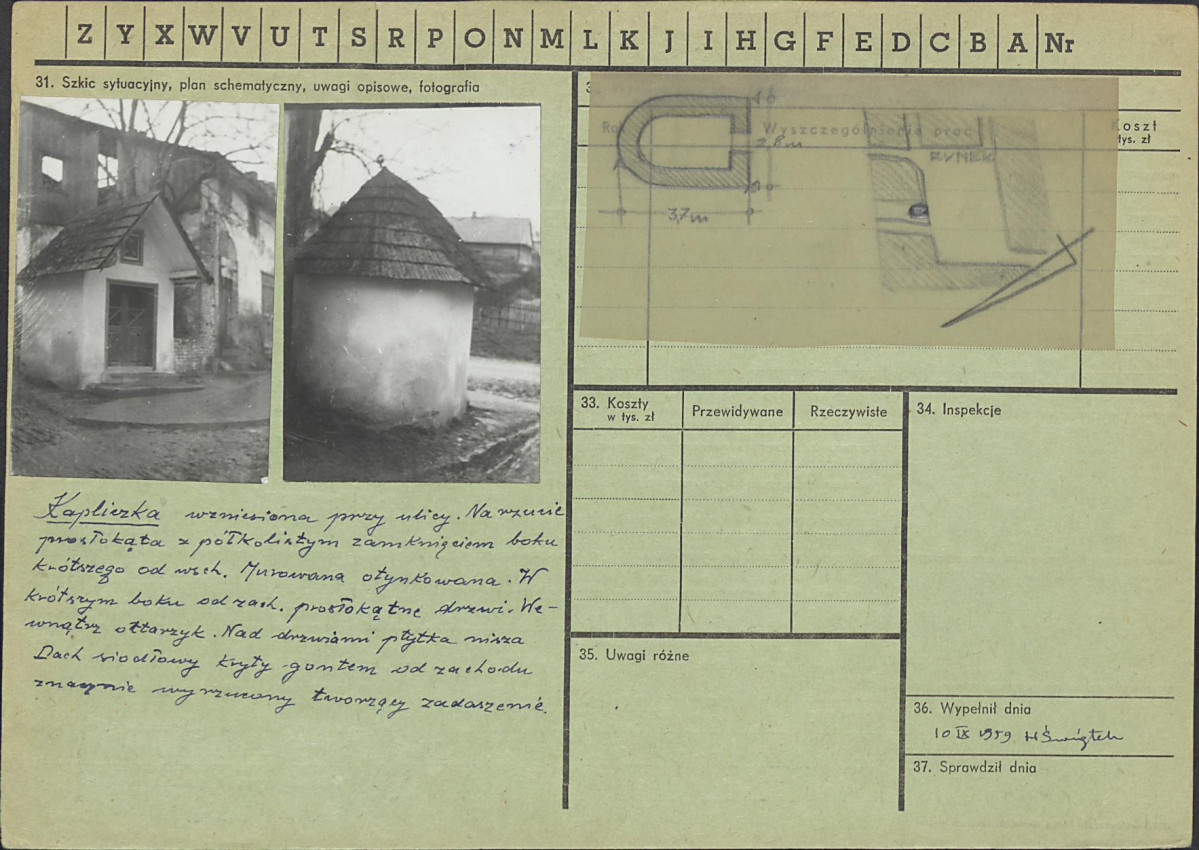 Z Y X W V U T S R P O N M L K J I H G F E D C B A Nr
31. Szkic sytuacyjny, plan schematyczny, uwagi opisowe, fotografia
Kapliczka wzniesiona przy ulicy. Na rzucie
prostokąta z półkolistym zamknięciem boku
krótszego od wsch. Murowana otynkowana. W
krótszym boku od zach. prostokątne drzwi. We-
wnątrz ołtarzyk. Nad drzwiami płytka nisza
Dach siodłowy kryty gontem od zachodu
znacznie wyrzucony tworzący zadaszenie.
Wyszczególnienie prac
Koszt
tys. zł
2,8m
3,7m
RYNEK
33. Koszty
w tys. zł
Przewidywane
Rzeczywiste
34. Inspekcje
35. Uwagi różne
36. Wypełnił dnia
10 IX 1959 H Świątek
37. Sprawdził dnia